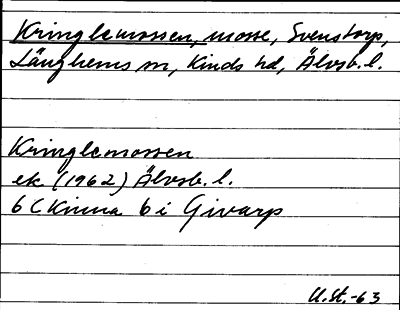 Kringlemossen, mosse, Svenstorp,
Länghems sn, Kinds hd, Älvsb. l.
Kringlemossen
ek (1962) Älvsb. l.
6 C Kinna 6 i Givarp
U.St.-63